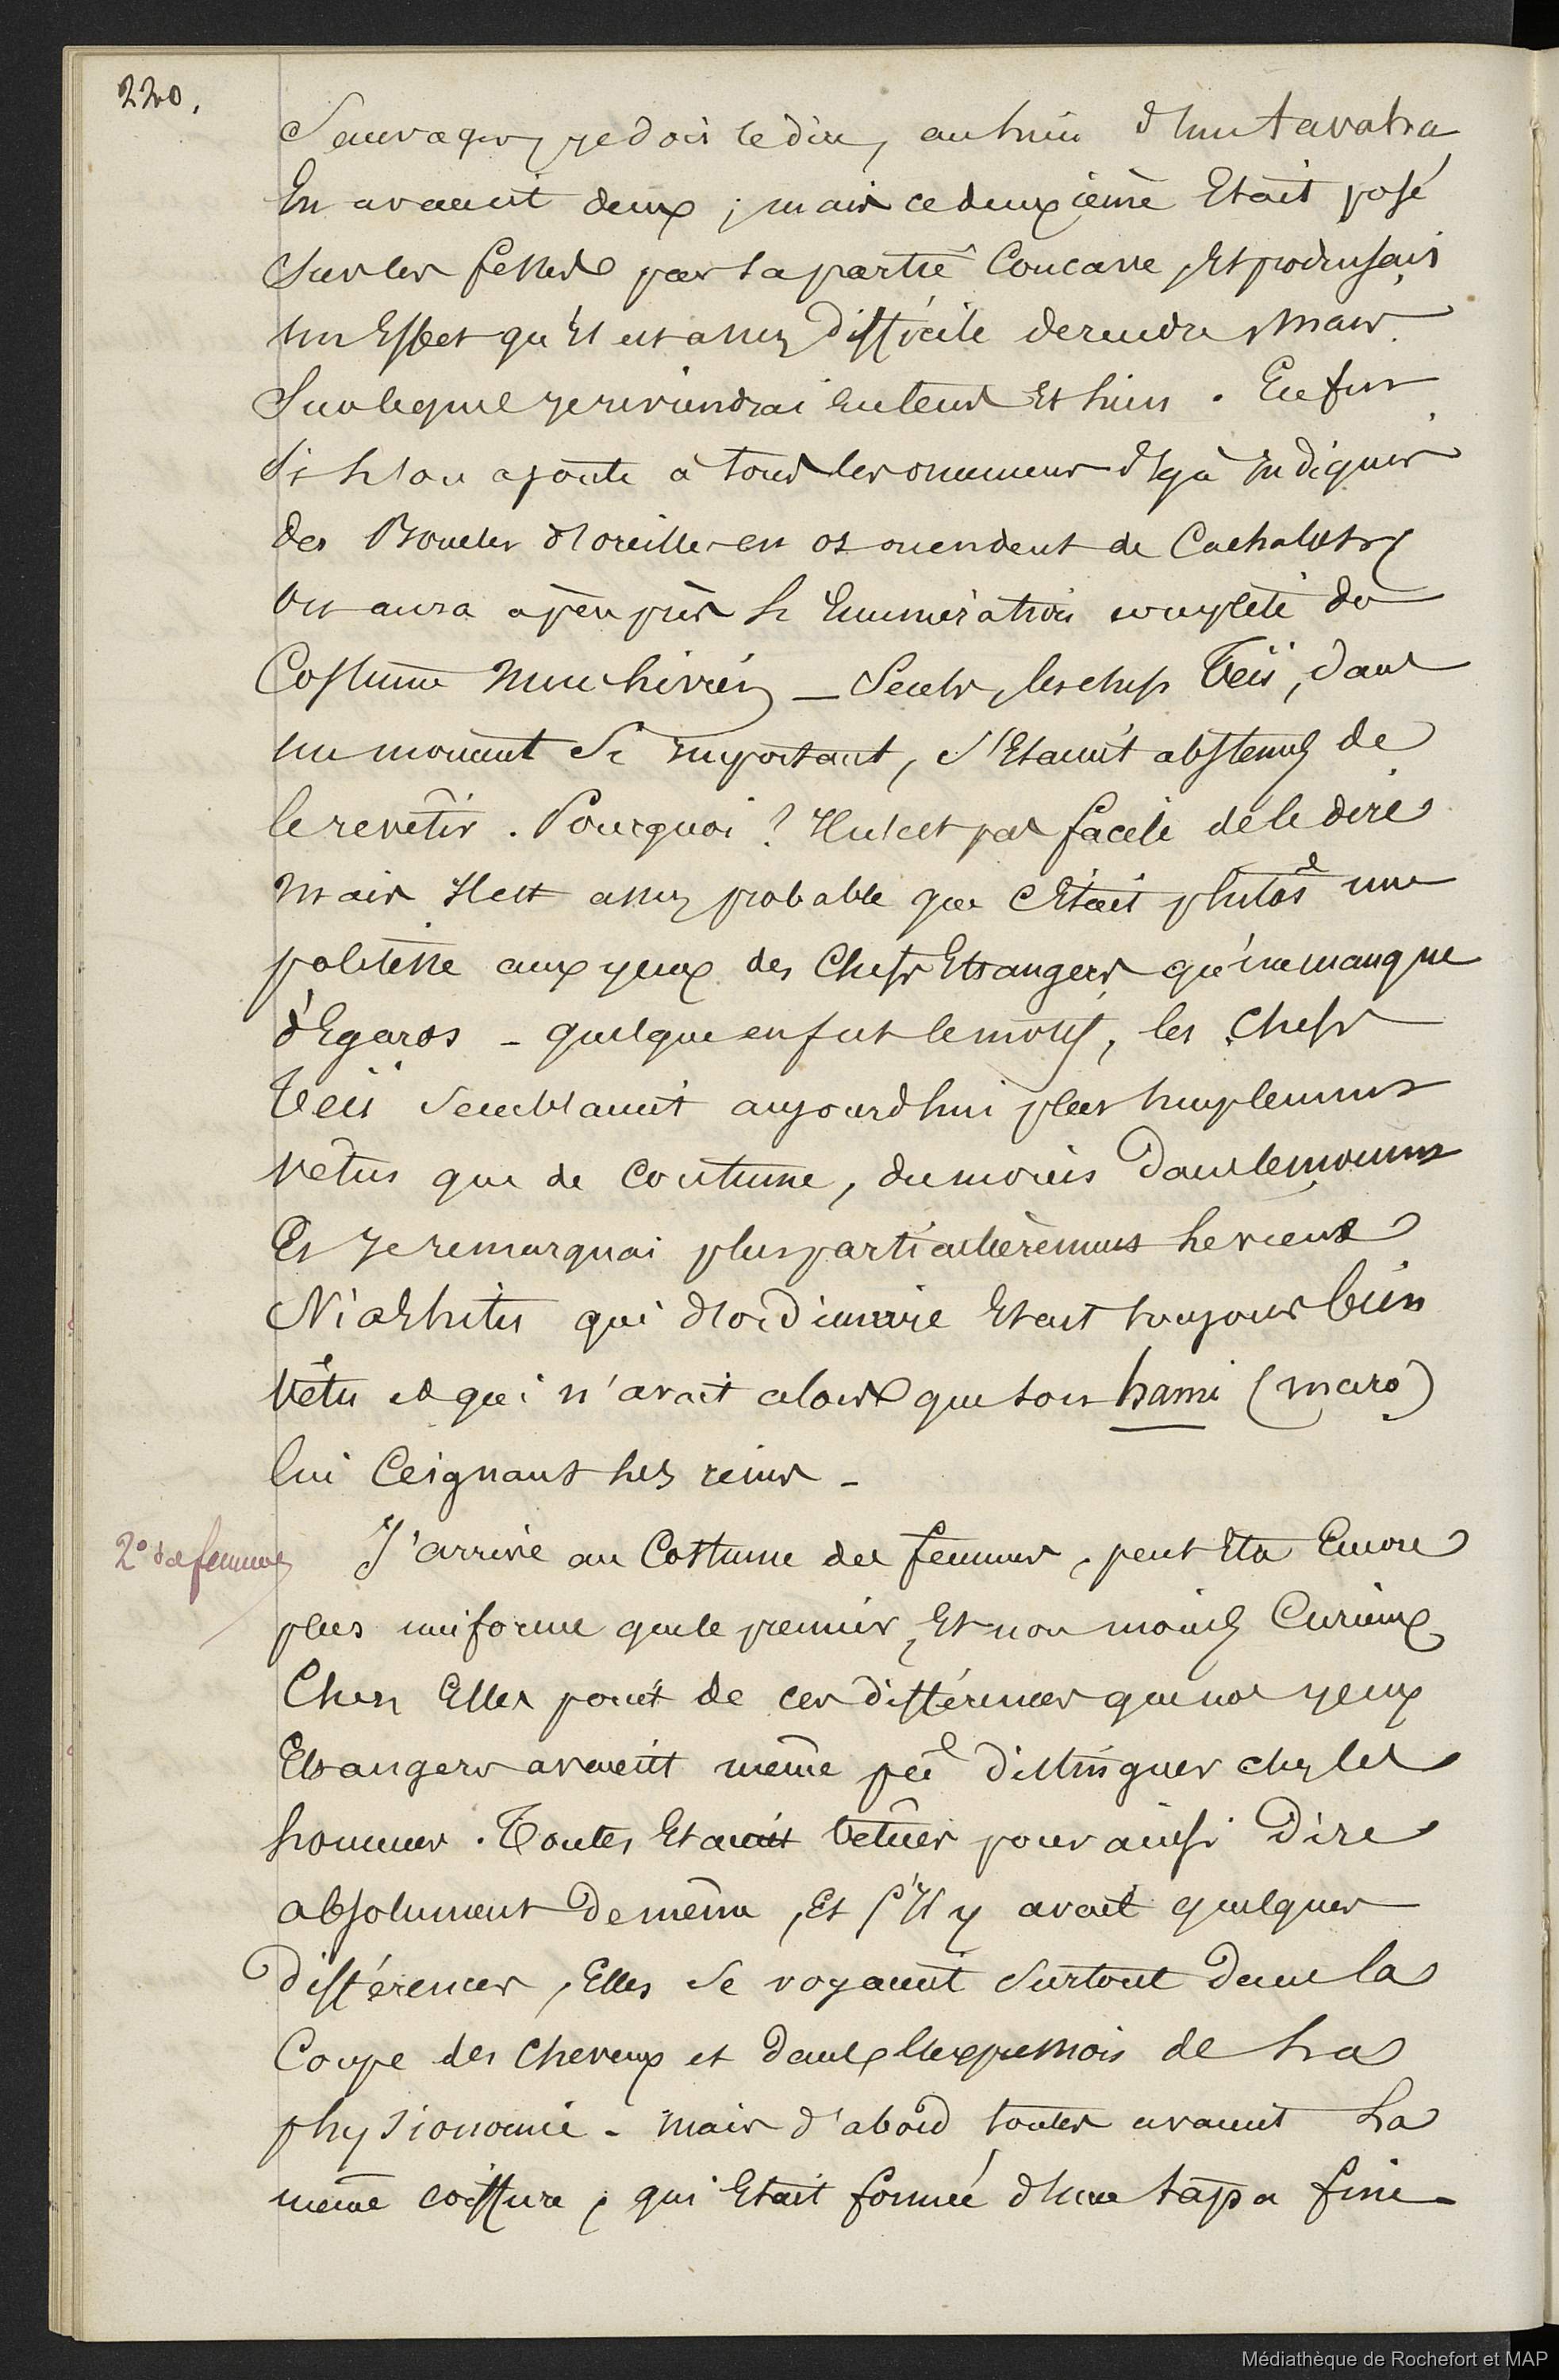 220.
Sauvages, je dois le dire, au lieu d'un tavaha
En avaient deux ; mais ce deuxième Etait posé
Sur les fesses par sa partie Concave, Et produisait
un Effet qu'il est assez difficile de rendre, Mais
Sur lequel je reviendrai En tems Et lieu. Enfin
Si l'on ajoute à tous les ornemens déjà Indiqués
des Boucles d'oreilles en os ou en dent de Cachalot,
on aura à peu près l'Enumération complète du
Costume Nouchivien — Seuls, les chefs Teïs, dans
un moment Si Important, S'Etaient abstenus de
le revêtir. Pourquoi ? Il n'est pas facile de le dire
Mais Il est assez probable que c'Etait plutôt une
politesse aux yeux des Chefs Etrangers qu'un manque
d'Egards - quelqu'en fut le motif, les Chefs
Teïs Semblaient aujourd'hui plus Simplement
vêtus que de Coutume, du moins dans le moment
Et Je remarquai plus particulièrement le vieux
Niahitu qui d'ordinaire Etait toujours bien
Vêtu et qui n'avait alors que son hami (maro)
lui Ceignant les reins -
2° des femmes
J'arrive au Costume des femmes, peut Etre Encore
plus uniforme que le premier, Et non moins Curieux,
Chez Elles point de ces différences que nos yeux
Etrangers avaient même pû distinguer chez les
hommes. Toutes Etaient Vêtues pour ainsi Dire
absolument De même, Et S'Il y avait quelques
Différences, Elles Se voyaient Surtout Dans la
Coupe des Cheveux et Dans l'expression de la
physionomie - Mais d'abord toutes avaient la
même coiffure, qui Etait formée d'une tapa fine
Médiathèque de Rochefort et MAP